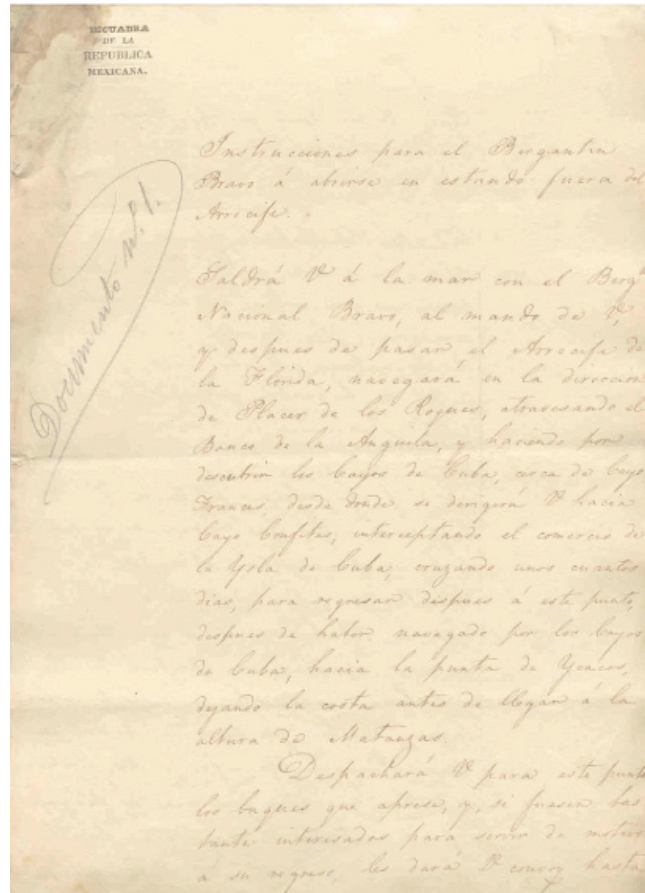 ESCUADRA
DE LA
REPUBLICA
MEXICANA.
Documento n.º 1.
Instrucciones para el Bergantin
Bravo á abrirse en estando fuera del
Arrecife.
Saldrá V á la mar con el Bergn
Nacional Bravo, al mando de V,
y despues de pasar el Arrecife de
la Florida, navegará en la direccion
de Placer de los Roques, atravesando el
Banco de la Anguila, y haciendo por
descubrir los Cayos de Cuba, cerca de Cayo
Frances, desde donde se dirigirá V hacia
Cayo Confites, interceptando el comercio de
la Ysla de Cuba, cruzando unos cuantos
dias, para regresar despues á este punto,
despues de haber navegado por los Cayos
de Cuba, hacia la punta de Ycacos,
dejando la costa antes de llegar á la
altura de Matanzas.
Despachará V para este punto
los buques que aprese, y, si fuesen bas
tante interesados para servir de motivo
á su regreso, les dará V convoy hasta